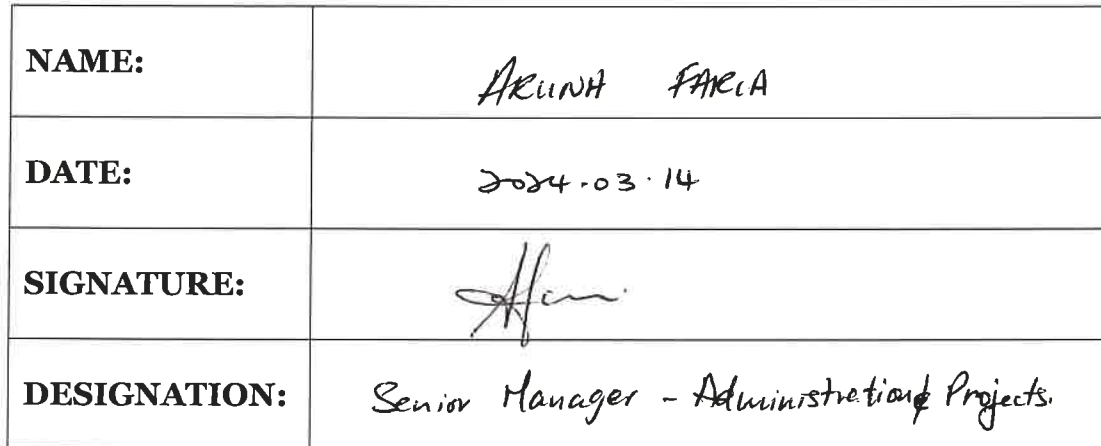 NAME: ARUNA FARIA
DATE: 2024.03.14
SIGNATURE:
DESIGNATION: Senior Manager - Administration & Projects.